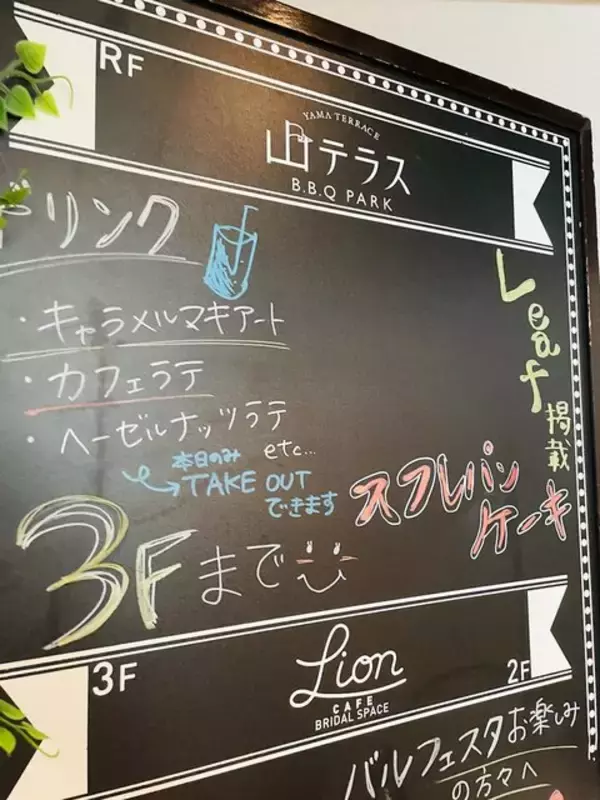 RF
YAMA TERRACE
山テラス
B.B.Q PARK
ドリンク
・キャラメルマキアート
・カフェラテ
・ヘーゼルナッツラテ
etc...
本日のみ
TAKE OUT
できます
Leaf
掲載
スフレパン
ケーキ
3Fまで
3F
Lion
CAFE
BRIDAL SPACE
2F
バルフェスタお楽しみ
の方々へ